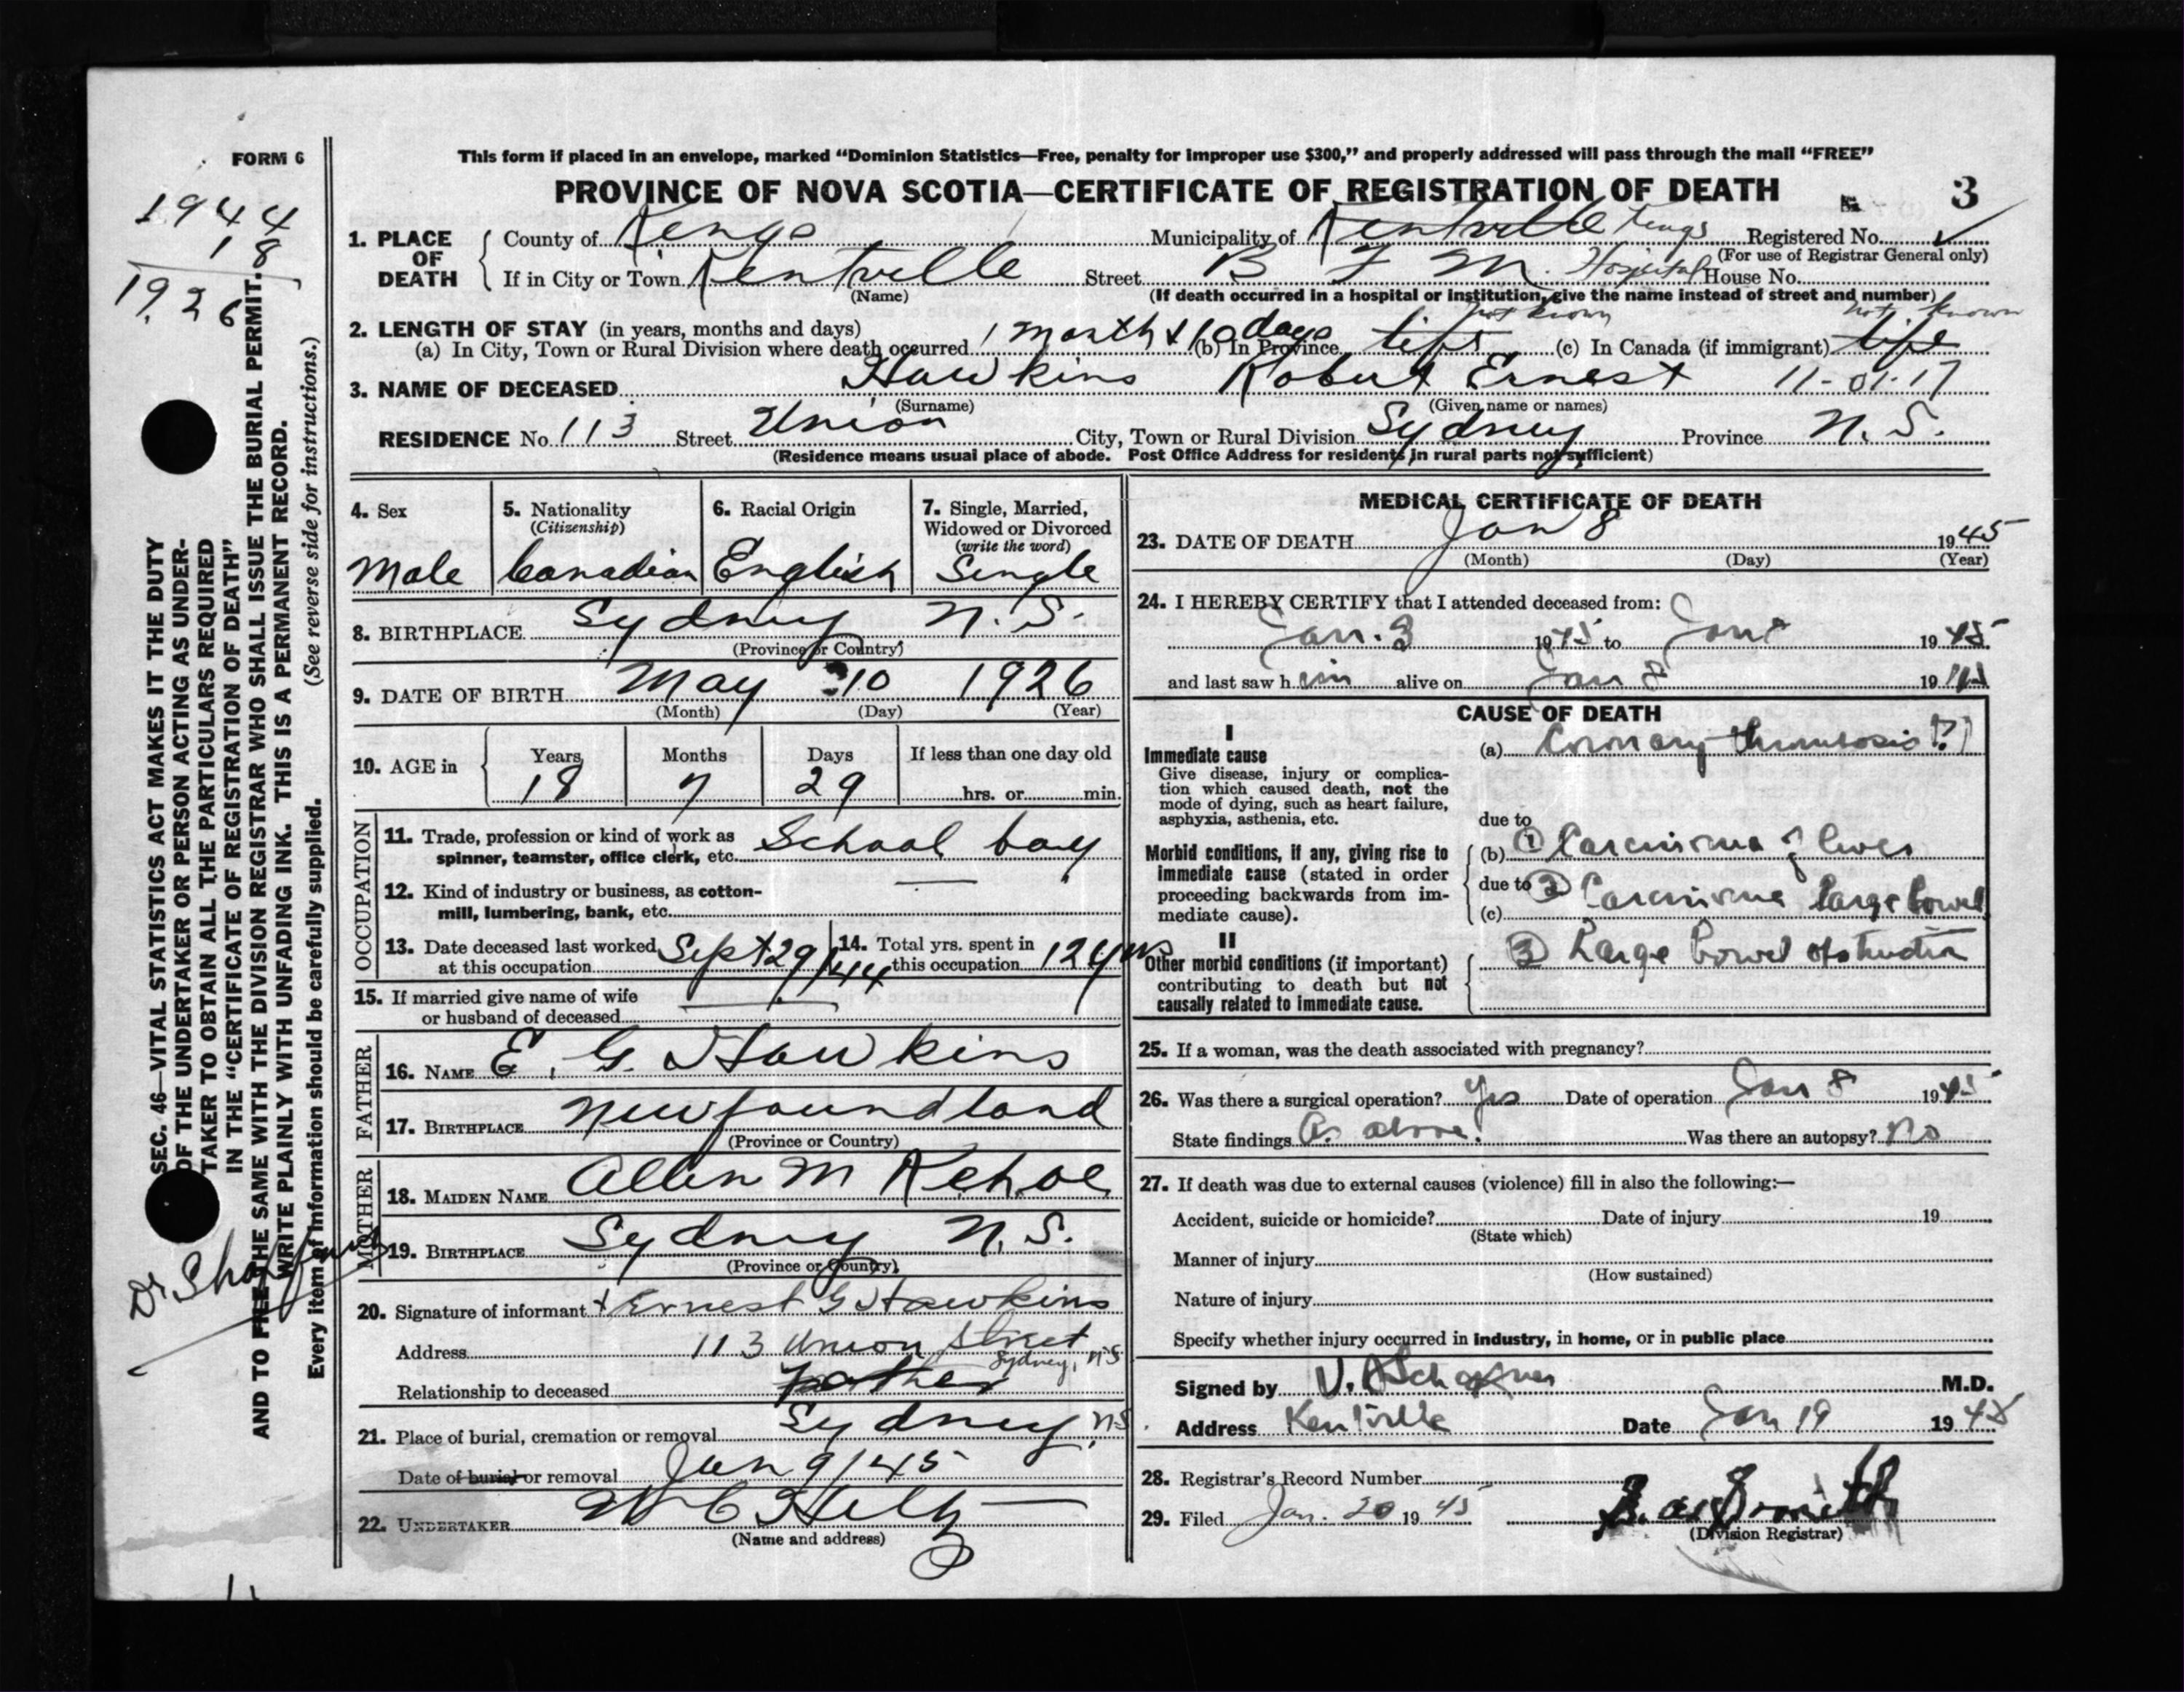 FORM 6
This form if placed in an envelope, marked “Dominion Statistics—Free, penalty for improper use $300,” and properly addressed will pass through the mail “FREE”
PROVINCE OF NOVA SCOTIA—CERTIFICATE OF REGISTRATION OF DEATH
3
1944
18
1926
1. PLACE OF DEATH
County of Kings Municipality of Kentville Kings Registered No. ✓
(For use of Registrar General only)
If in City or Town Kentville Street B F M. Hospital House No.
(Name) (If death occurred in a hospital or institution, give the name instead of street and number)
not known not known
2. LENGTH OF STAY (in years, months and days)
(a) In City, Town or Rural Division where death occurred 1 month & 10 days (b) In Province life (c) In Canada (if immigrant) life
3. NAME OF DECEASED Hawkins Robert Ernest 11-01-17
(Surname) (Given name or names)
RESIDENCE No. 113 Street Union City, Town or Rural Division Sydney Province N. S.
(Residence means usual place of abode. Post Office Address for residents in rural parts not sufficient)
4. Sex
Male
5. Nationality
(Citizenship)
Canadian
6. Racial Origin
English
7. Single, Married,
Widowed or Divorced
(write the word)
Single
8. BIRTHPLACE Sydney N. S.
(Province or Country)
9. DATE OF BIRTH May 10 1926
(Month) (Day) (Year)
10. AGE in
Years Months Days If less than one day old
18 7 29 hrs. or min.
OCCUPATION
11. Trade, profession or kind of work as
spinner, teamster, office clerk, etc. School boy
12. Kind of industry or business, as cotton-
mill, lumbering, bank, etc. —
13. Date deceased last worked
at this occupation Sept 29/44
14. Total yrs. spent in
this occupation 12 yrs
15. If married give name of wife
or husband of deceased —
FATHER
16. NAME E. G. Hawkins
17. BIRTHPLACE Newfoundland
(Province or Country)
MOTHER
18. MAIDEN NAME Allen M Kehoe
19. BIRTHPLACE Sydney N. S.
(Province or Country)
20. Signature of informant + Ernest G Hawkins
Address 113 Union Street
Sydney, N S
Relationship to deceased Father
21. Place of burial, cremation or removal Sydney, N S
Date of burial or removal Jan 9/45
22. UNDERTAKER W C
(Name and address)
MEDICAL CERTIFICATE OF DEATH
23. DATE OF DEATH Jan 8 1945
(Month) (Day) (Year)
24. I HEREBY CERTIFY that I attended deceased from:
Jan. 3 1945 to Jan 1945
and last saw h im alive on Jan 8 1945
CAUSE OF DEATH
I
Immediate cause
Give disease, injury or complica-
tion which caused death, not the
mode of dying, such as heart failure,
asphyxia, asthenia, etc.
(a) Coronary thrombosis (?)
due to
Morbid conditions, if any, giving rise to
immediate cause (stated in order
proceeding backwards from im-
mediate cause).
(b) ① Carcinoma of liver
due to ② Carcinoma large bowel
(c)
II
Other morbid conditions (if important)
contributing to death but not
causally related to immediate cause.
③ Large bowel obstruction
25. If a woman, was the death associated with pregnancy?
26. Was there a surgical operation? Yes Date of operation Jan 8 1945
State findings As above. Was there an autopsy? No
27. If death was due to external causes (violence) fill in also the following:—
Accident, suicide or homicide? Date of injury 19
(State which)
Manner of injury
(How sustained)
Nature of injury
Specify whether injury occurred in industry, in home, or in public place
Signed by V. A Schaffner M.D.
Address Kentville Date Jan 19 1945
28. Registrar's Record Number
29. Filed Jan. 20 1945
(Division Registrar)
SEC. 46—VITAL STATISTICS ACT MAKES IT THE DUTY
OF THE UNDERTAKER OR PERSON ACTING AS UNDER-
TAKER TO OBTAIN ALL THE PARTICULARS REQUIRED
IN THE “CERTIFICATE OF REGISTRATION OF DEATH”
AND TO FILE THE SAME WITH THE DIVISION REGISTRAR WHO SHALL ISSUE THE BURIAL PERMIT.
WRITE PLAINLY WITH UNFADING INK. THIS IS A PERMANENT RECORD.
Every item of information should be carefully supplied. (See reverse side for instructions.)
Dr Shaffner